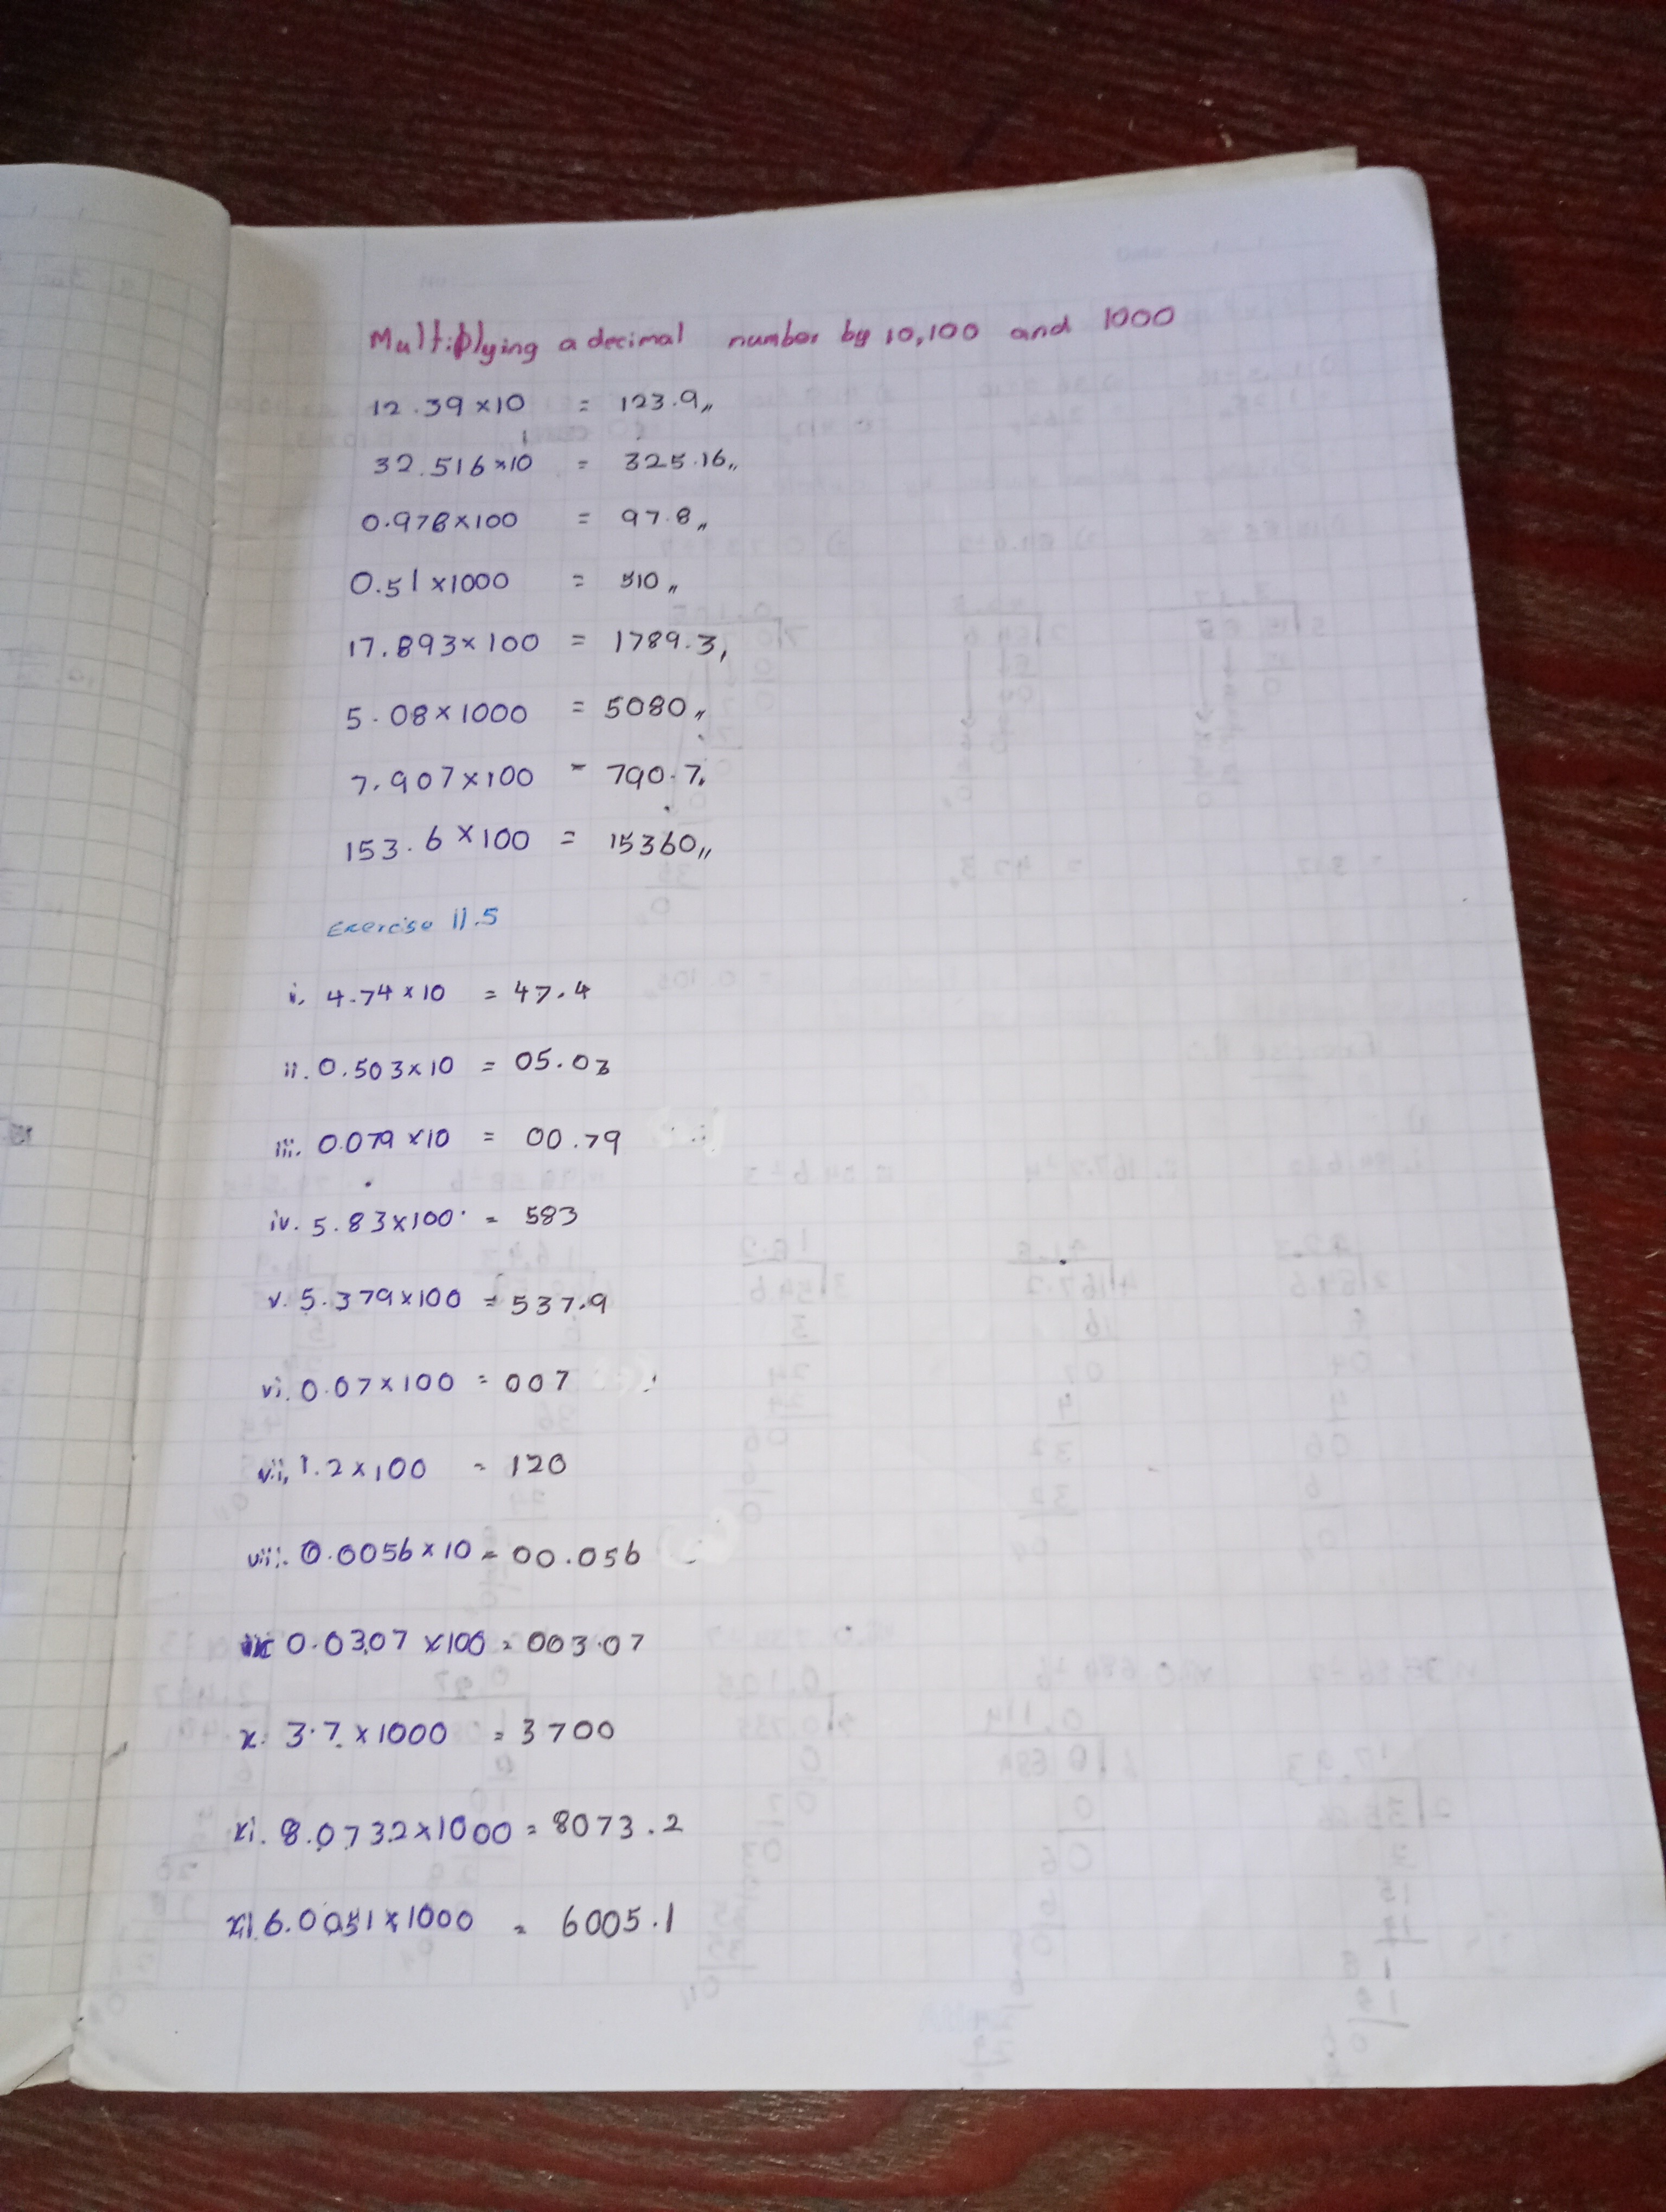 Multiplying a decimal number by 10,100 and 1000
12.39 × 10 = 123.9,,
32.516 × 10 = 325.16,,
0.978 × 100 = 97.8,,
0.51 × 1000 = 510,,
17.893 × 100 = 1789.3,
5.08 × 1000 = 5080,,
7.907 × 100 = 790.7,
153.6 × 100 = 15360,,
Exercise 11.5
i. 4.74 × 10 = 47.4
ii. 0.503 × 10 = 05.03
iii. 0.079 × 10 = 00.79
iv. 5.83 × 100 = 583
v. 5.379 × 100 = 537.9
vi. 0.07 × 100 = 007
vii, 1.2 × 100 = 120
viii. 0.0056 × 10 = 00.056
ix 0.0307 × 100 = 003.07
x. 3.7 × 1000 = 3700
xi. 8.0732 × 1000 = 8073.2
xii 6.0051 × 1000 = 6005.1